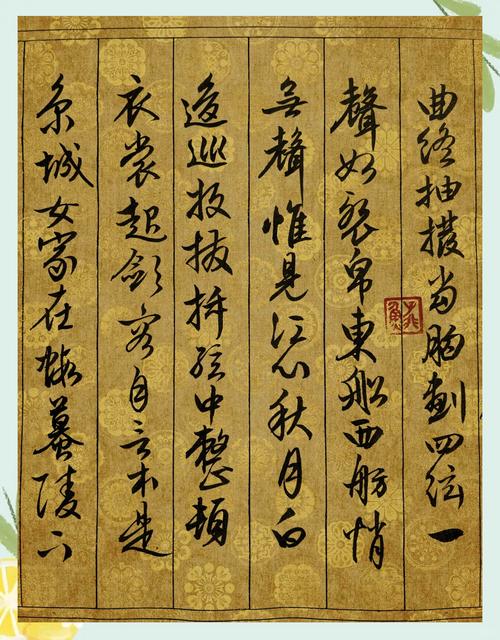 曲終抽撥當胸劃四絃一
聲如裂帛東船西舫悄
無聲惟見江心秋月白
逡巡投拔插絃中整頓
衣裳起斂容自言本是
京城女家在蝦蟇陵下